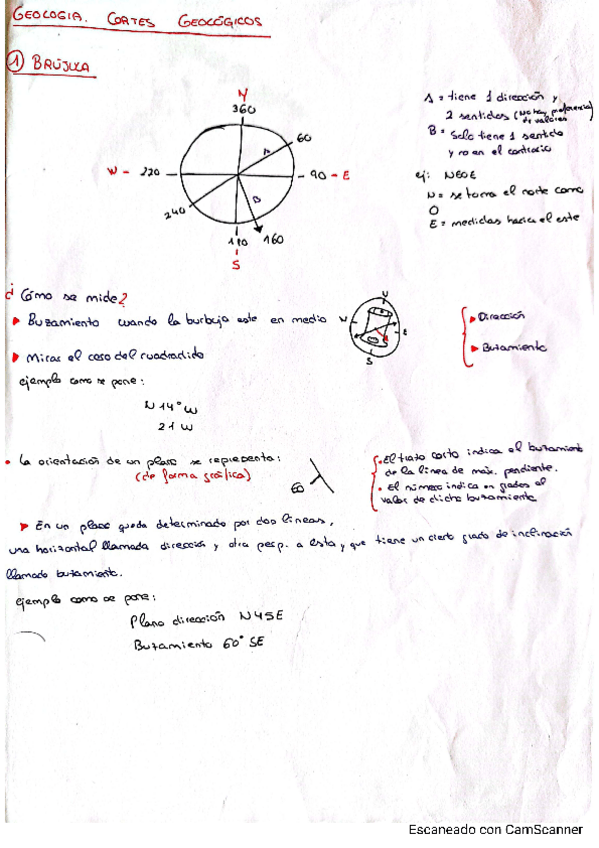 GEOLOGIA. CORTES GEOLÓGICOS
1 BRÚJULA
N
360
60
A
W - 220
90 - E
B
240
180
160
S
A = tiene 1 dirección y
2 sentidos (No hay preferencia
de valores)
B = Solo tiene 1 sentido
y no en el contrario
ej: N60E
N = se toma el norte como
0
E = medidas hacia el este
¿Cómo se mide?
Buzamiento cuando la burbuja este en medio
N
W
E
S
Dirección
Buzamiento
Miras el coso del cuadradido
ejemplo como se pone:
N 14° W
21 W
La orientación de un plano se representa:
(de forma gráfica)
60
El trazo corto indica el buzamiento
de la linea de max. pendiente.
El número indica en grados el
valor de dicho buzamiento
En un plano queda determinado por dos lineas,
una horizontal llamada dirección y otra perp. a esta y que tiene un cierto grado de inclinación
llamado buzamiento.
ejemplo como se pone:
Plano dirección N45E
Buzamiento 60° SE
Escaneado con CamScanner